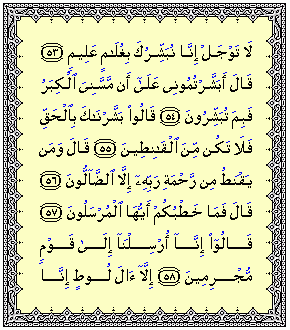 لَا تَوْجَلْ إِنَّا نُبَشِّرُكَ بِغُلَٰمٍ عَلِيمٍ ﴿٥٣﴾
قَالَ أَبَشَّرْتُمُونِى عَلَىٰٓ أَن مَّسَّنِىَ ٱلْكِبَرُ
فَبِمَ تُبَشِّرُونَ ﴿٥٤﴾ قَالُوا۟ بَشَّرْنَٰكَ بِٱلْحَقِّ
فَلَا تَكُن مِّنَ ٱلْقَٰنِطِينَ ﴿٥٥﴾ قَالَ وَمَن
يَقْنَطُ مِن رَّحْمَةِ رَبِّهِۦٓ إِلَّا ٱلضَّآلُّونَ ﴿٥٦﴾
قَالَ فَمَا خَطْبُكُمْ أَيُّهَا ٱلْمُرْسَلُونَ ﴿٥٧﴾
قَالُوٓا۟ إِنَّآ أُرْسِلْنَآ إِلَىٰ قَوْمٍ
مُّجْرِمِينَ ﴿٥٨﴾ إِلَّآ ءَالَ لُوطٍ إِنَّا